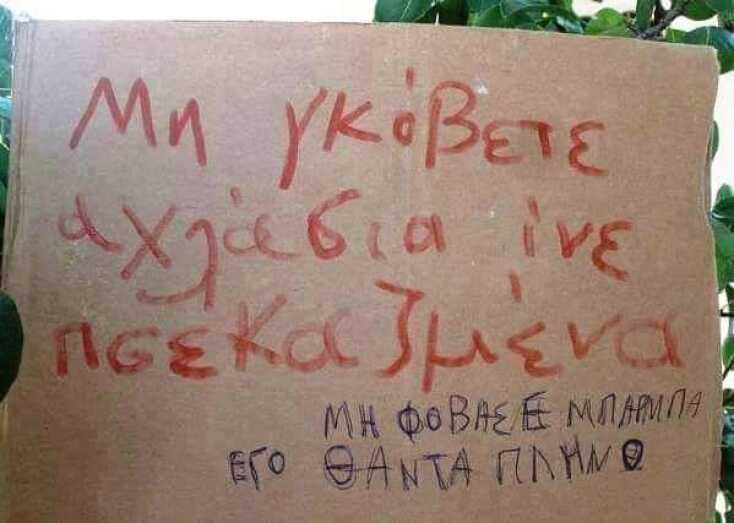 Μη γκόβετε
αχλάδια ίνε
πσεκαζμένα
ΜΗ ΦΟΒΑΣΕ ΜΠΑΡΜΠΑ
ΕΓΟ ΘΑΝΤΑ ΠΛΗΝΟ